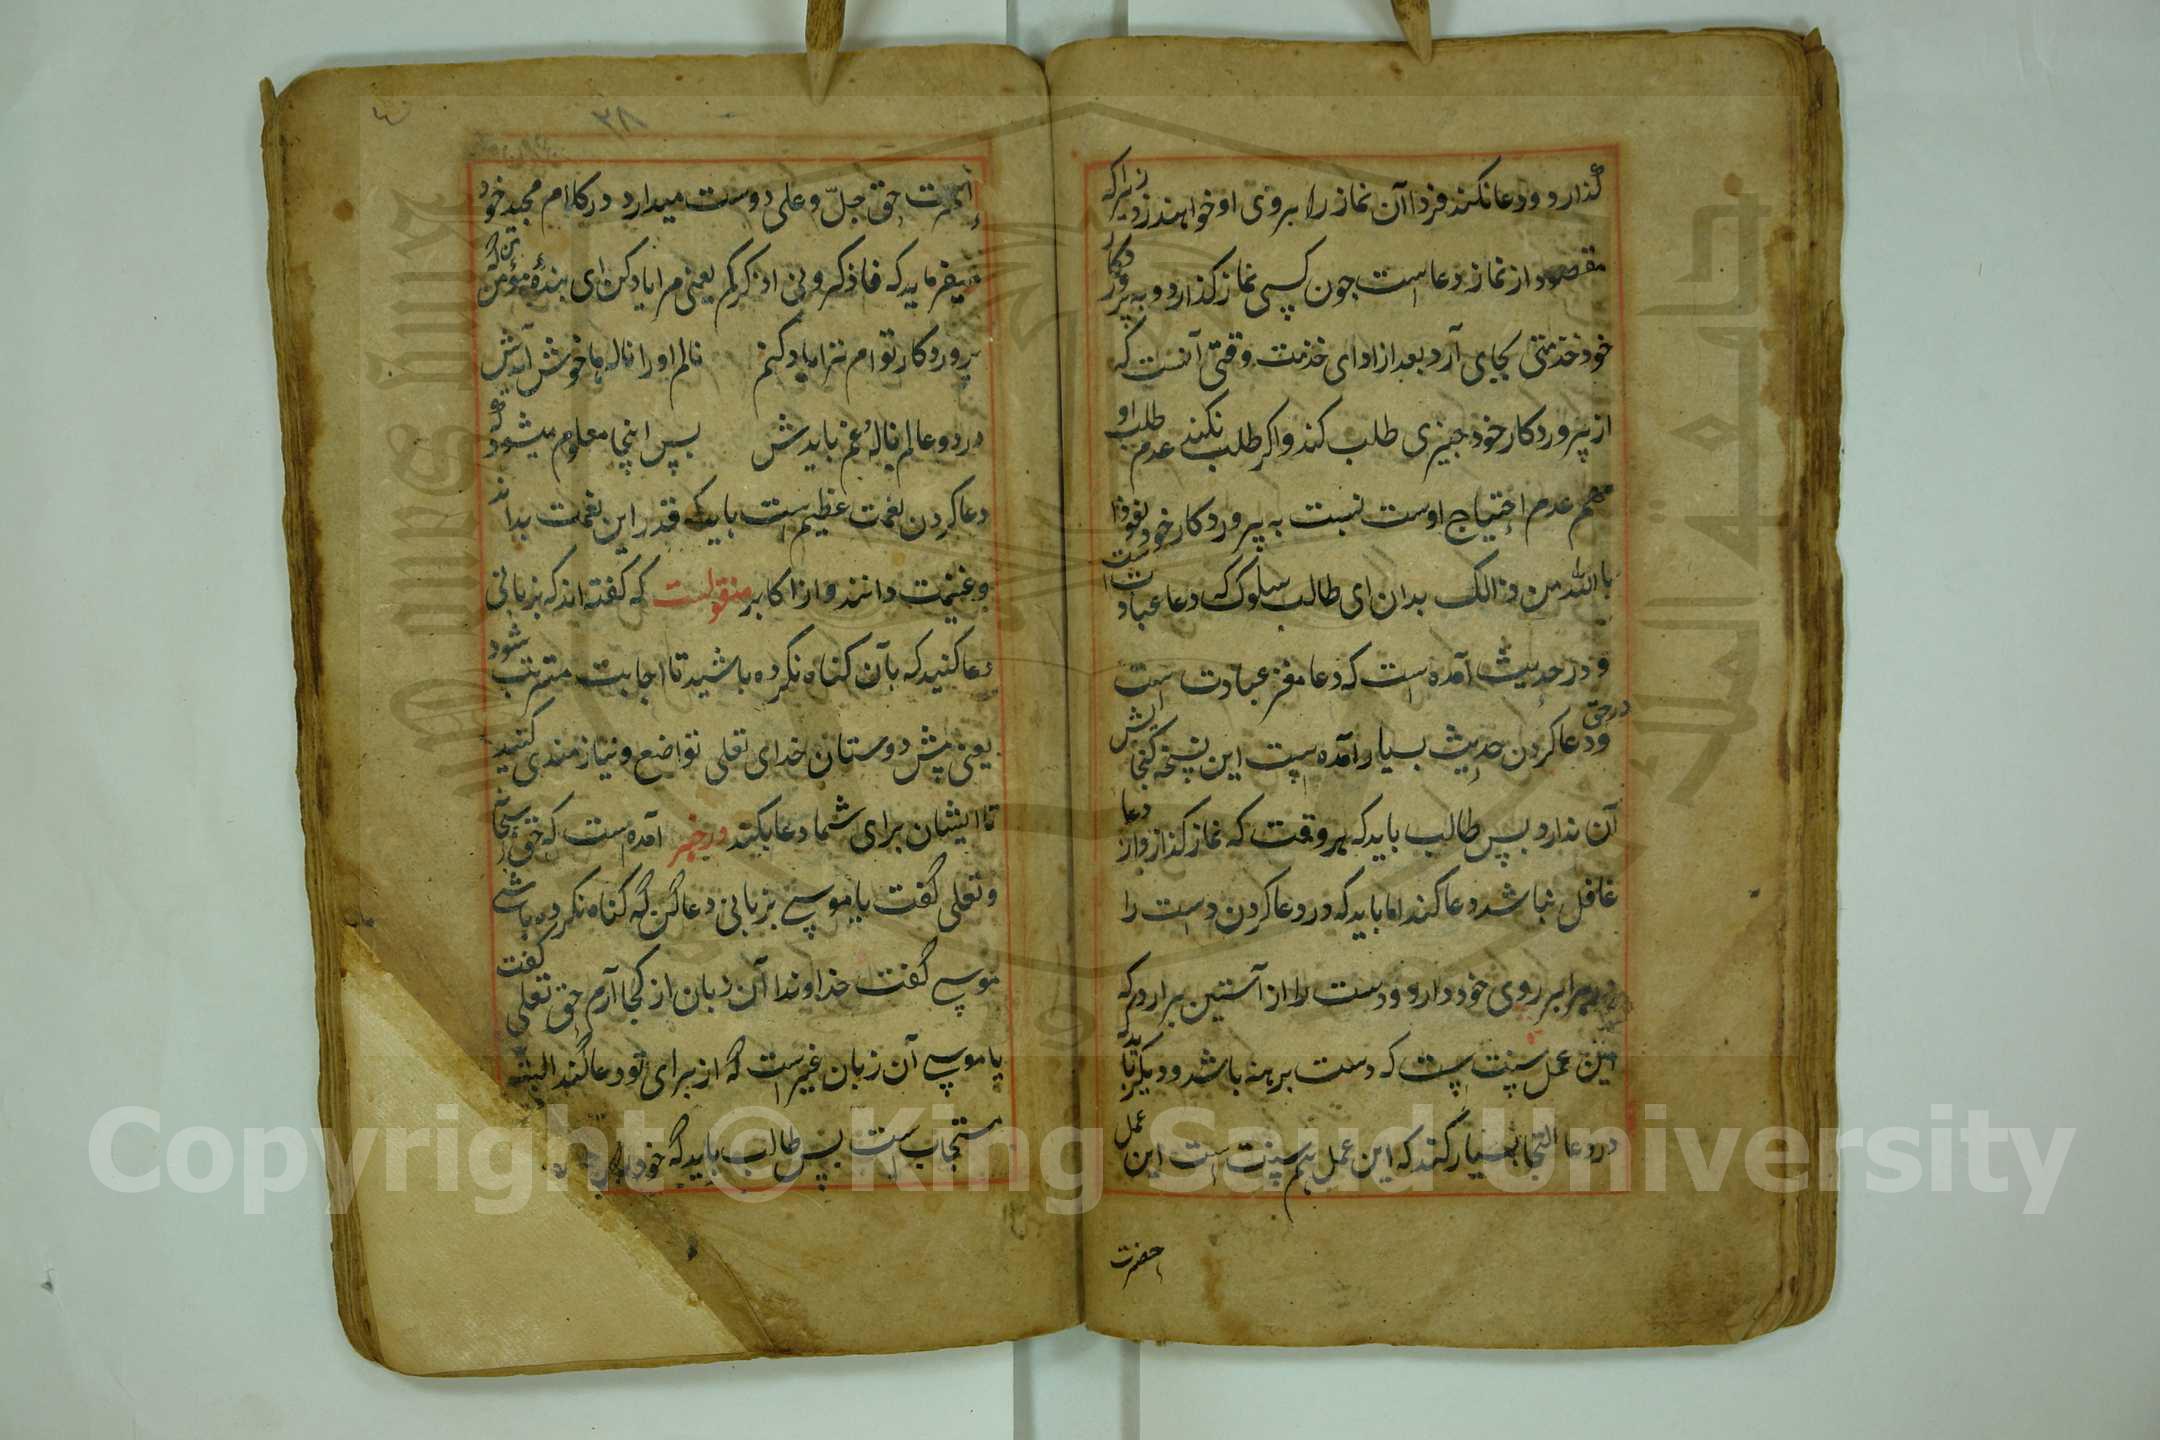 گذارد و دعا نکند فردا آن نماز را بروی او خواهند زد زیراکه
مقصود از نماز دعا است جون کسی نماز کذارد و به پروردکار
خود خذمتی بجای آرد بعد از ادای خذمت وقتی آنست که
از پروردکار خود جیزی طلب کند و اکر طلب نکند عدم طلب او
هم عدم احتیاج اوست نسبت به پروردکار خود نعوذ
بالله من ذالک بدان ای طالب سلوک که دعا عبادت است
و در حدیث آمده است که دعا مغز عبادت است
و در حق دعا کردن حدیث بسیار آمده است این نسخه کنجایش
آن ندارد پس طالب باید که هر وقت که نماز کذارد از دعا
غافل نباشد دعا کند اما باید که در دعا کردن دست را
برابر روی خود دارد و دست را از آستین برارد که
این عمل سنت است که دست برهنه باشد و دیکر باید که
در دعا التجا بسیار کند که این عمل هم سنت است این عمل
حضرت
۲۸
حضرت حق جلّ و علی دوست میدارد در کلام مجید خود
میفرماید که فاذکرونی اذکرکم یعنی مرا یاد کن ای بندهٔ مؤمن که من
پروردکار تو ام ترا یاد کنم نالم او را ناله ها خوش آیدش
در دو عالم ناله غم بایدش پس اینجا معلوم میشود که
دعا کردن نعمت عظیم است باید که قدر این نعمت بدانند
و غنیمت دانند و از اکابر منقولست که کفته اند که بزبانی
دعا کنید که بآن کناه نکرده باشید تا اجابت مترتب شود
یعنی پش دوستان خدای تعلی تواضع و نیازمندی کنید
تا ایشان برای شما دعا بکنند در خبر آمده است که حق سبحانه
و تعلی گفت یا موسی بزبانی دعا کن که کناه نکرده باشی
موسی گفت خداوندا آن زبان از کجا آرم حق تعلی گفت
یا موسی آن زبان غیر است که از برای تو دعا کند البته
مستجاب است پس طالب باید که خود را
Copyright © King Saud University
جامعة الملك سعود
King Saud University